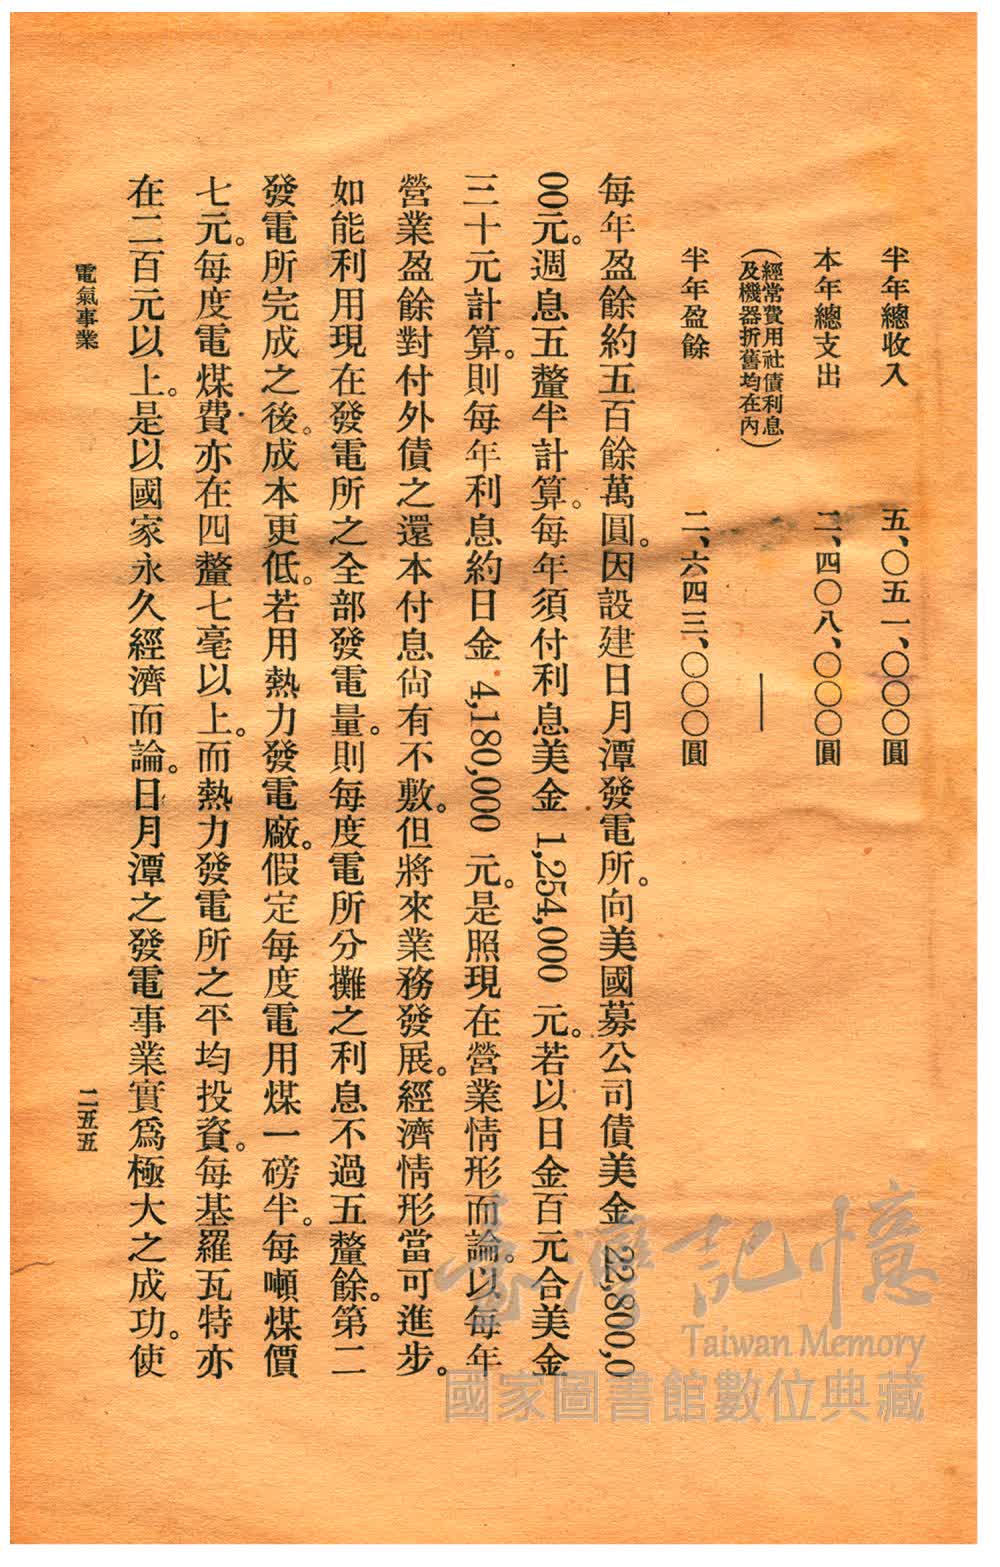 半年總收入　五、〇五一、〇〇〇圓
本年總支出　二、四〇八、〇〇〇圓
（經常費用社債利息
及機器折舊均在內）　——
半年盈餘　二、六四三、〇〇〇圓
每年盈餘約五百餘萬圓。因設建日月潭發電所。向美國募公司債美金 22,800,0
00元。週息五釐半計算。每年須付利息美金 1,254,000 元。若以日金百元合美金
三十元計算。則每年利息約日金 4,180,000 元。是照現在營業情形而論。以每年
營業盈餘對付外債之還本付息尙有不敷。但將來業務發展。經濟情形當可進步。
如能利用現在發電所之全部發電量。則每度電所分攤之利息不過五釐餘。第二
發電所完成之後。成本更低。若用熱力發電廠。假定每度電用煤一磅半。每噸煤價
七元。每度電煤費亦在四釐七毫以上。而熱力發電所之平均投資。每基羅瓦特亦
在二百元以上。是以國家永久經濟而論。日月潭之發電事業實爲極大之成功。使
電氣事業　二五五
臺灣記憶
Taiwan Memory
國家圖書館數位典藏